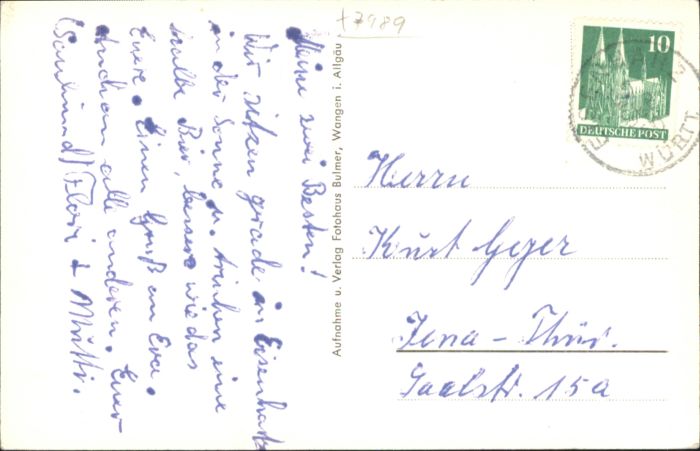 Meine zwei Besten!
Wir sitzen gerade in Eisenharz
in der Sonne u. trinken eine
Halbe Bier, besser wie das
Eure. Einen Gruß an Eva.
Auch an alle anderen. Euer
Flori + Mutti.
Aufnahme u. Verlag Fotohaus Bulmer, Wangen i. Allgäu
+7989
10
DEUTSCHE POST
WÜRTT
Herrn
Kurt Geyer
Jena - Thür.
Saalstr. 15a